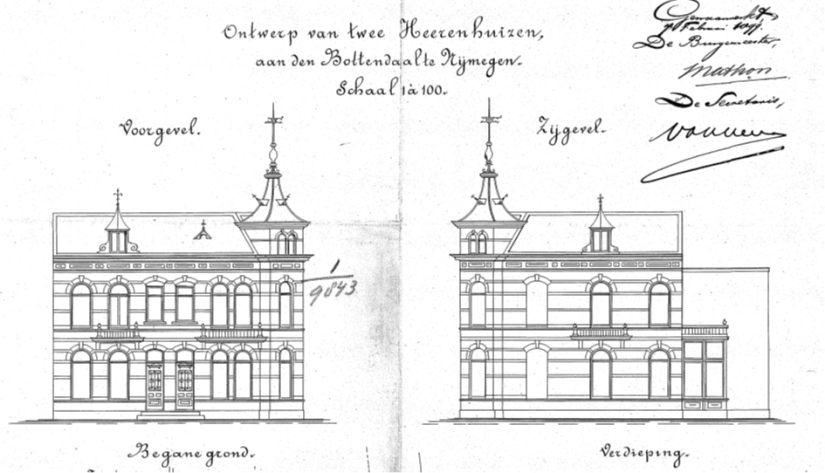 Ontwerp van twee Heerenhuizen,
aan den Bottendaal te Nijmegen.
Schaal 1 à 100.
De Burgemeester,
De Secretaris,
Voorgevel.
Zijgevel.
1
9843
Begane grond.
Verdieping.